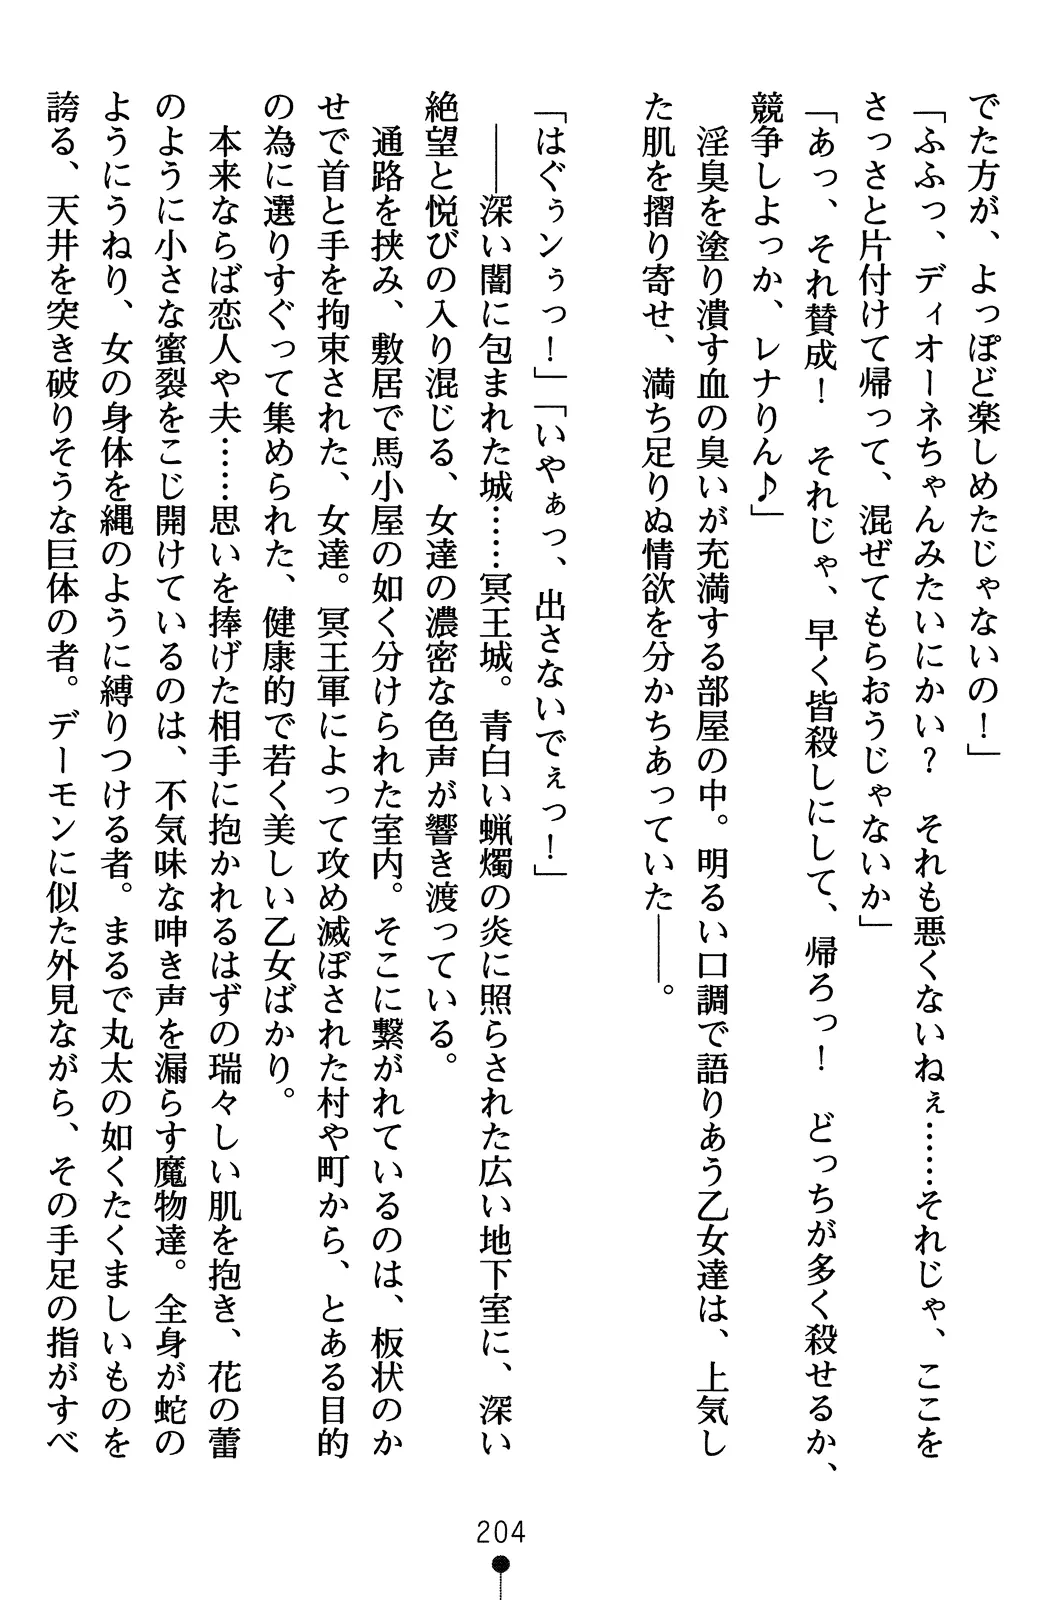 でた方が、よっぽど楽しめたじゃないの！」
「ふふっ、ディオーネちゃんみたいにかい？　それも悪くないねぇ……それじゃ、ここを
さっさと片付けて帰って、混ぜてもらおうじゃないか」
「あっ、それ賛成！　それじゃ、早く皆殺しにして、帰ろっ！　どっちが多く殺せるか、
競争しよっか、レナりん♪」
　淫臭を塗り潰す血の臭いが充満する部屋の中。明るい口調で語りあう乙女達は、上気し
た肌を摺り寄せ、満ち足りぬ情欲を分かちあっていた――。
「はぐぅンぅっ！」「いやぁっ、出さないでぇっ！」
　――深い闇に包まれた城……冥王城。青白い蝋燭の炎に照らされた広い地下室に、深い
絶望と悦びの入り混じる、女達の濃密な色声が響き渡っている。
　通路を挟み、敷居で馬小屋の如く分けられた室内。そこに繋がれているのは、板状のか
せで首と手を拘束された、女達。冥王軍によって攻め滅ぼされた村や町から、とある目的
の為に選りすぐって集められた、健康的で若く美しい乙女ばかり。
　本来ならば恋人や夫……思いを捧げた相手に抱かれるはずの瑞々しい肌を抱き、花の蕾
のように小さな蜜裂をこじ開けているのは、不気味な呻き声を漏らす魔物達。全身が蛇の
ようにうねり、女の身体を縄のように縛りつける者。まるで丸太の如くたくましいものを
誇る、天井を突き破りそうな巨体の者。デーモンに似た外見ながら、その手足の指がすべ
204